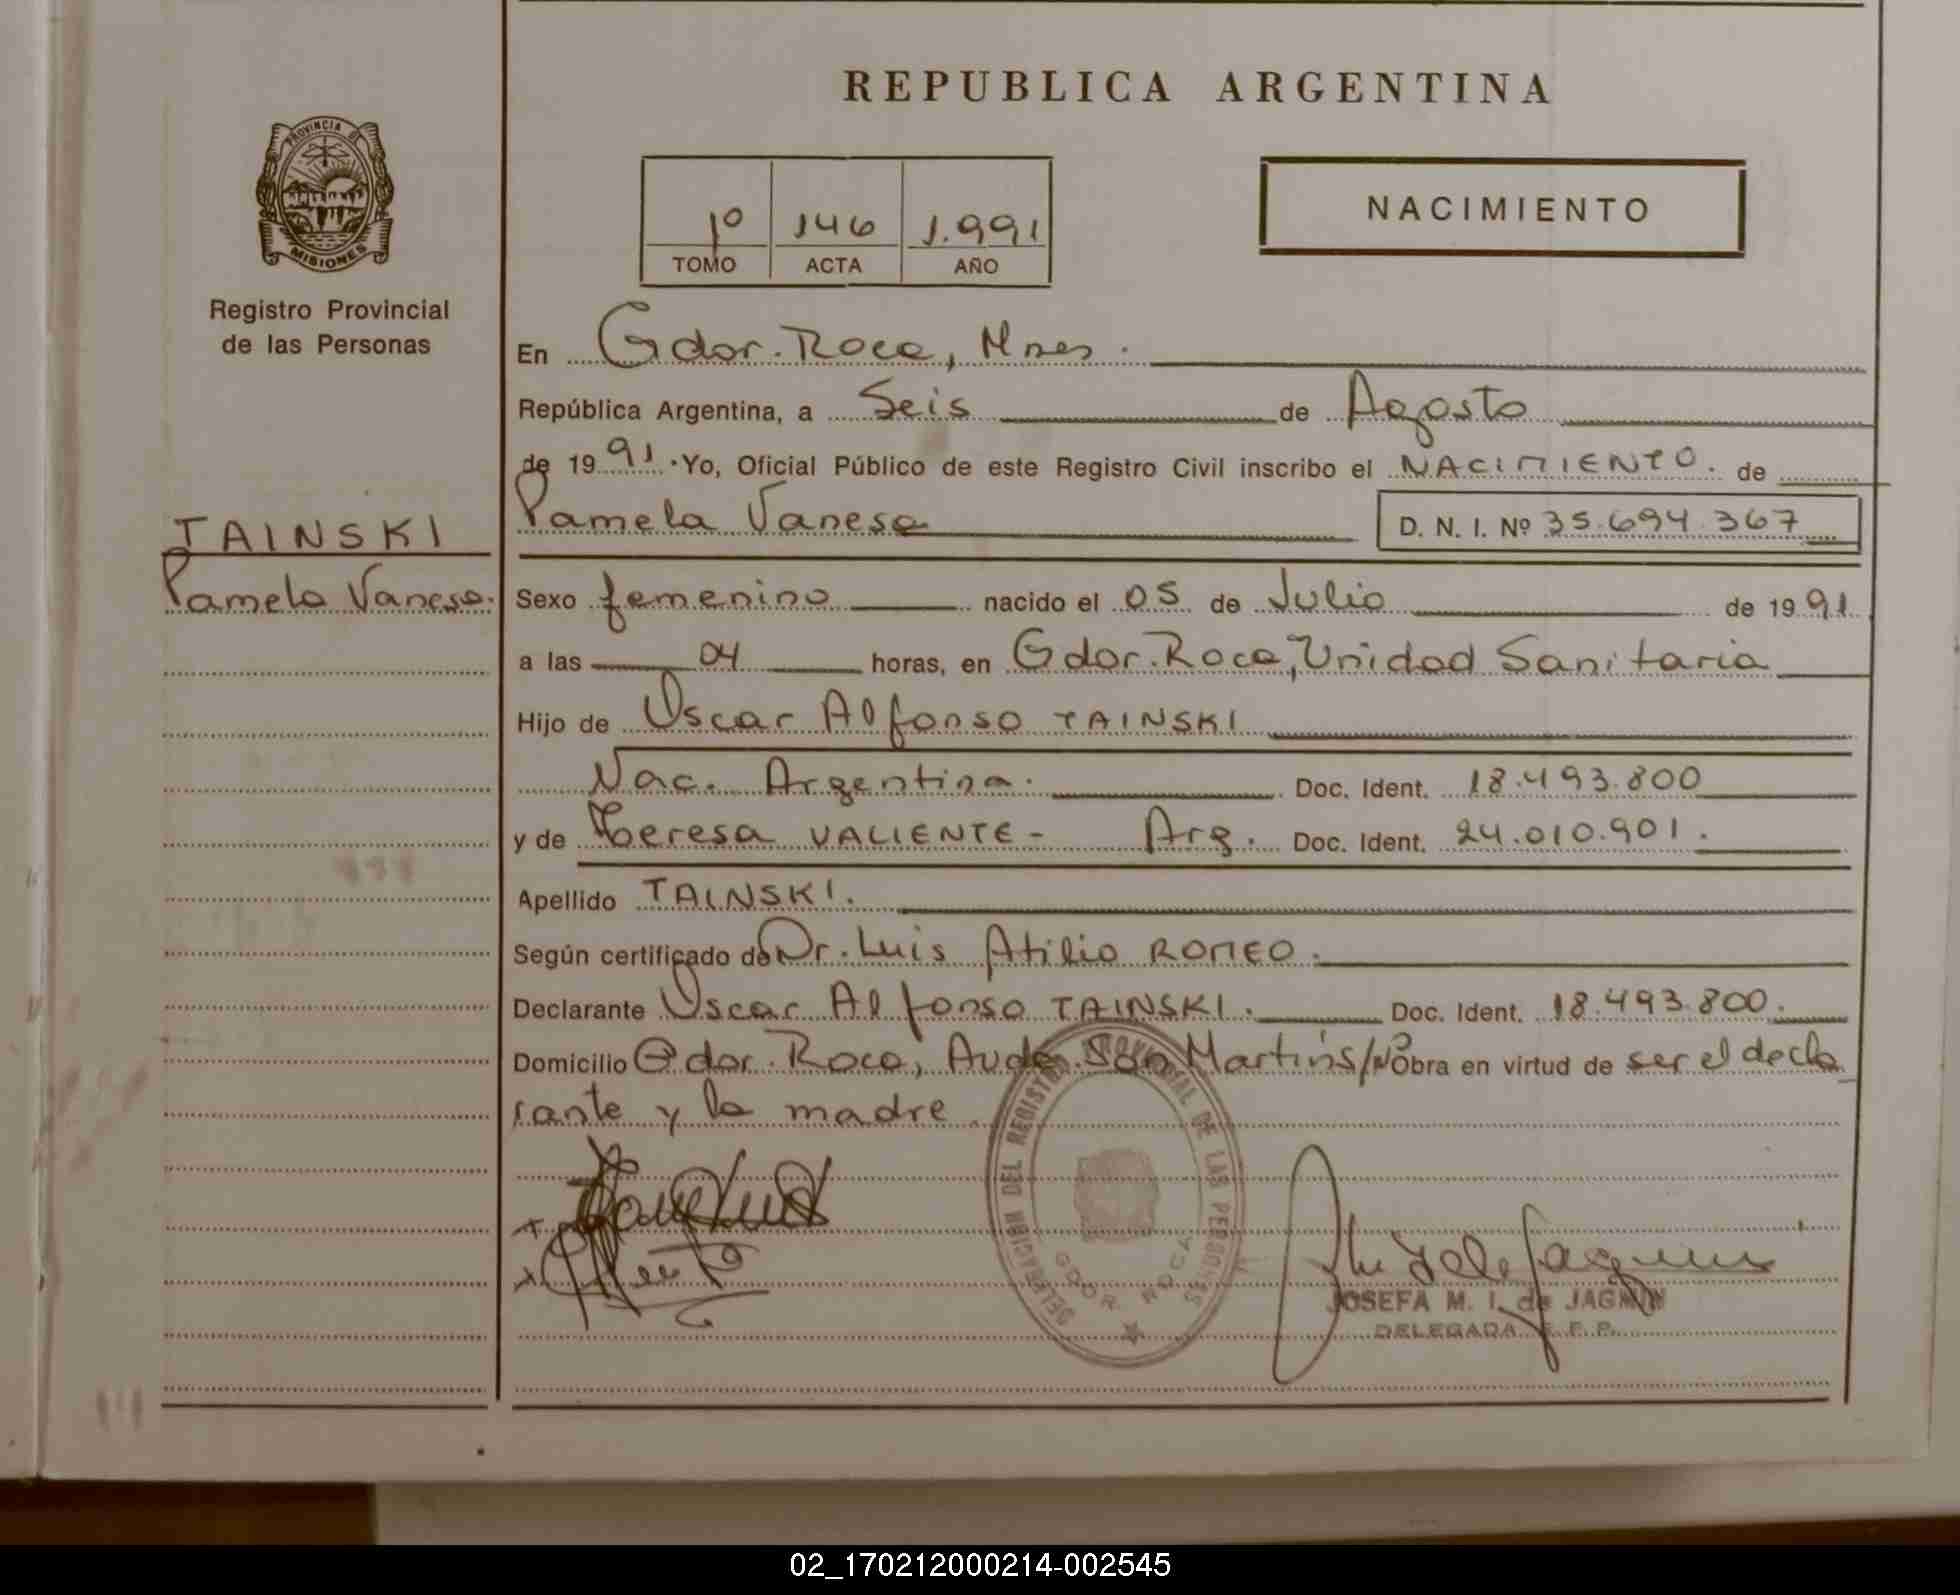 REPUBLICA ARGENTINA
PROVINCIA DE
MISIONES
Registro Provincial
de las Personas
1º 146 1.991
TOMO ACTA AÑO
NACIMIENTO
En Gdor. Roca, Mnes.
República Argentina, a Seis de Agosto
de 1991. Yo, Oficial Público de este Registro Civil inscribo el NACIMIENTO. de
TAINSKI
Pamela Vanesa.
Pamela Vanesa D. N. I. Nº 35.694.367
Sexo femenino nacido el 05 de Julio de 1991
a las 04 horas, en Gdor. Roca, Unidad Sanitaria
Hijo de Oscar Alfonso TAINSKI
Nac. Argentina. Doc. Ident. 18.493.800
y de Teresa VALIENTE - Arg. Doc. Ident. 24.010.901.
Apellido TAINSKI.
Según certificado de Dr. Luis Atilio ROMEO.
Declarante Oscar Alfonso TAINSKI. Doc. Ident. 18.493.800.
Domicilio Gdor. Roca, Avda. San Martín s/nº Obra en virtud de ser el decla
rante y la madre
DELEGACION DEL REGISTRO PROVINCIAL DE LAS PERSONAS
GDOR ROCA
JOSEFA M. I. de JAGMIN
DELEGADA
02_170212000214-002545